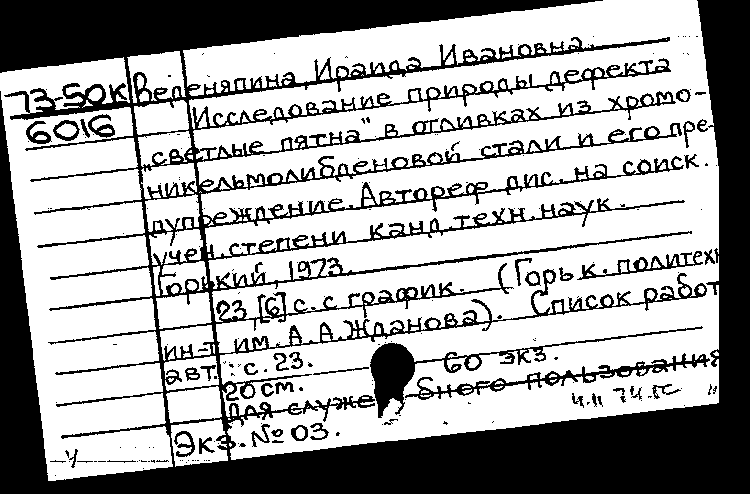 73-50К Веденяпина, Ираида Ивановна.
6016 Исследование природы дефекта
„светлые пятна" в отливках из хромо-
никельмолибденовой стали и его пре-
дупреждение. Автореф дис. на соиск.
учен. степени канд. техн. наук.
Горький, 1973.
23, [6] с. с график. (Горьк. политехн
ин-т им. А. А. Жданова). Список работ
авт.: с. 23. 60 экз.
20 см.
Для служебного пользования
Экз. № 03.